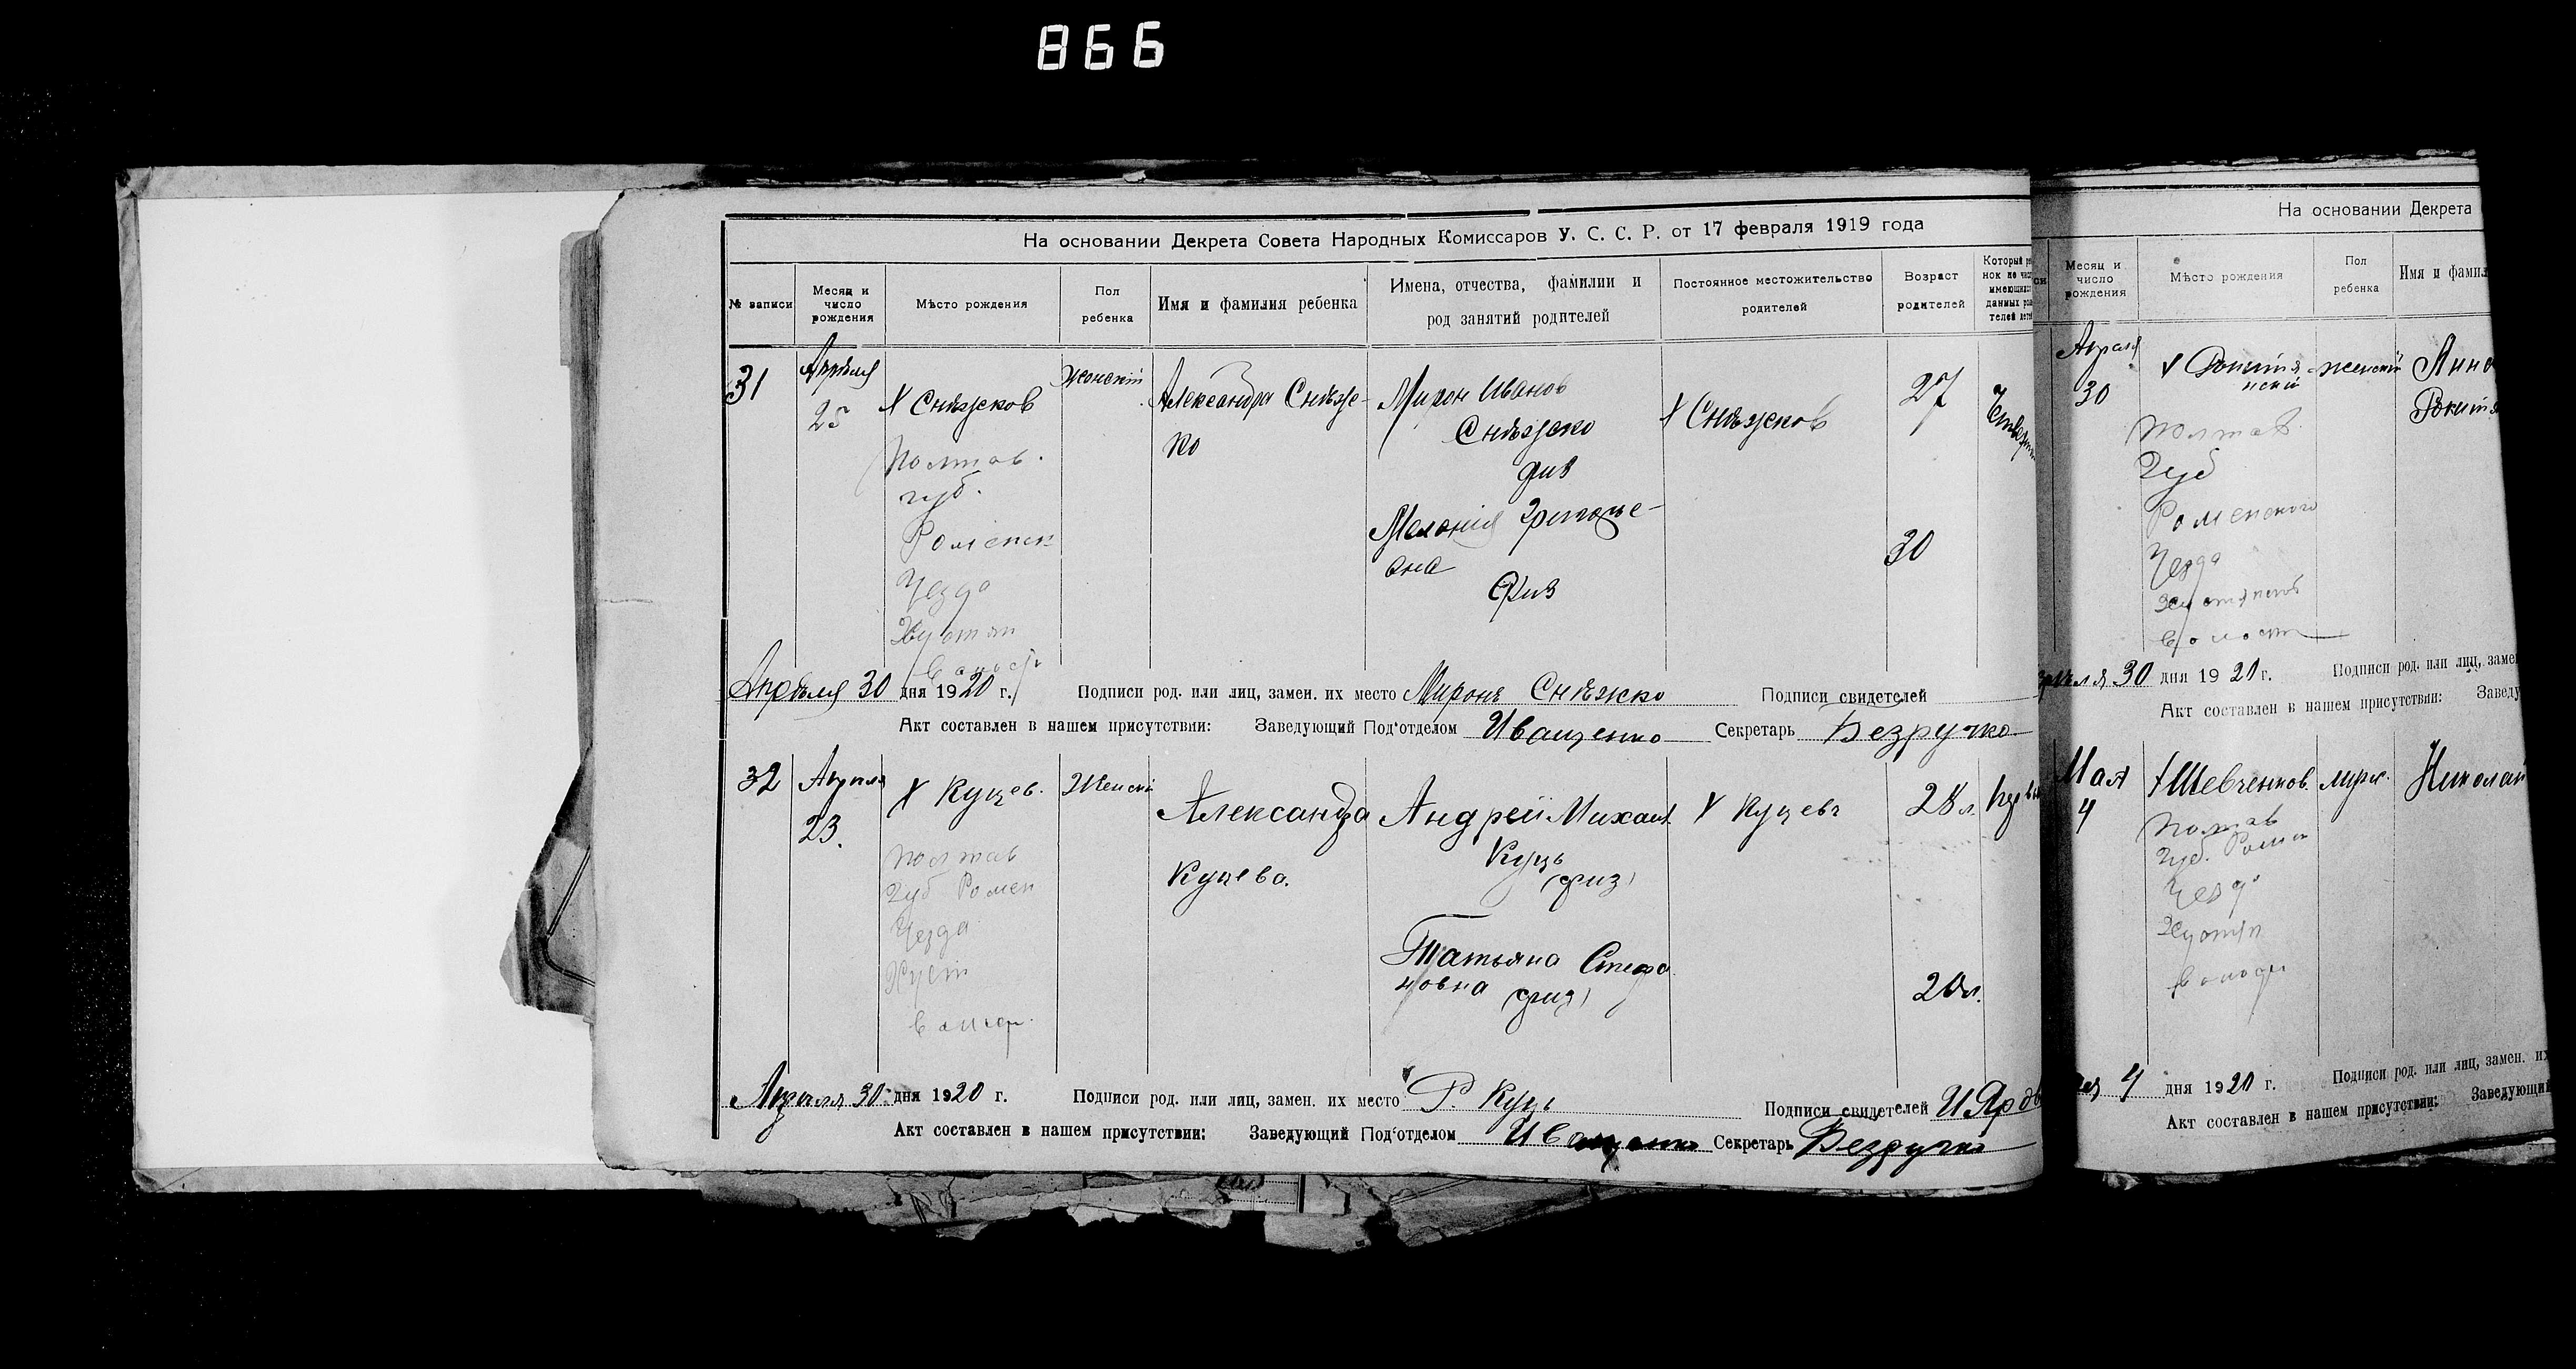 866
На основании Декрета Совета Народных Комиссаров У. С. С. Р. от 17 февраля 1919 года
№ записи
Месяц и число рождения
Мѣсто рождения
Пол ребенка
Имя и фамилия ребенка
Имена, отчества, фамилии и род занятий родителей
Постоянное местожительство родителей
Возраст родителей
31
Апрѣля
25
х Снѣжков
Полтав.
губ.
Роменск
Уезда
Хустян
Женский
Александра Снѣж-
ко
Мирон Иванов
Снѣжко
Мелания Григорье-
вна
х Снѣжков
27
30
Апрѣля 30 дня 1920 г.
Подписи род. или лиц, замен. их место Миронъ Снѣжко
Подписи свидетелей
Акт составлен в нашем присутствии: Заведующий Под'отделом Иващенко Секретарь Безручко
32
Апреля
23.
х Куцев.
Полтав
Губ Ромен
Уезда
Хуст
Женски
Александра
Куцева.
Андрей Михаил.
Куць
(физ)
Татьяна Стефа
новна (физ)
х Куцевъ
28 л.
20 л.
Апреля 30 дня 1920 г.
Подписи род. или лиц, замен. их место Р. Куць
Подписи свидетелей
Акт составлен в нашем присутствии: Заведующий Под'отделом Иващенко Секретарь Безручко
На основании Декрета
Месяц и число рождения
Мѣсто рождения
Пол ребенка
Имя и фамил
Апреля
30
Полтав.
Губ
Роменского
Уезда
Волост
женский
Анна
30 дня 1920 г.
Подписи род. или лиц, замен
Акт составлен в нашем присутствии: Заведу
Мая
4
х Шевченков.
Полтав
Губ. Ромен
Уезд
Хустян
муж.
Николай
4 дня 1920 г.
Подписи род. или лиц, замен. их
Акт составлен в нашем присутствии: Заведующий